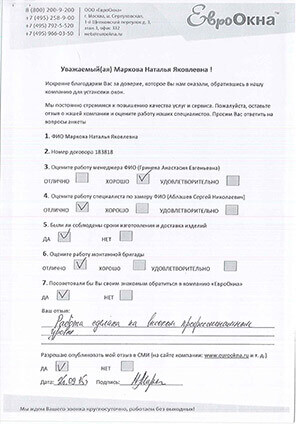 8 (800) 200-9-200
+7 (495) 258-9-00
+7 (495) 792-5-520
+7 (495) 966-03-50
ООО «ЕвроОкна»
г. Москва, м. Серпуховская,
стан. 3, офис 32
ЕвроОкна™
Уважаемый(ая) Маркова Наталья Яковлевна !
Искренне благодарим Вас за доверие, которое Вы нам оказали, обратившись в нашу
компанию для установки окон.
Мы постоянно стремимся к повышению качества услуг и сервиса. Пожалуйста, оставьте
отзыв о нашей компании и оцените работу наших специалистов. Просим Вас ответить на
вопросы анкеты
1. ФИО Маркова Наталья Яковлевна
2. Номер договора 183818
3. Оцените работу менеджера ФИО (Гринева Анастасия Евгеньевна)
ОТЛИЧНО ХОРОШО УДОВЛЕТВОРИТЕЛЬНО
4. Оцените работу специалиста по замеру ФИО (Аблашев Сергей Николаевич)
ОТЛИЧНО ХОРОШО УДОВЛЕТВОРИТЕЛЬНО
5. Были ли соблюдены сроки изготовления и доставка изделий
ДА НЕТ
6. Оцените работу монтажной бригады
ОТЛИЧНО ХОРОШО УДОВЛЕТВОРИТЕЛЬНО
7. Посоветовали бы Вы своим знакомым обратиться в компанию «ЕвроОкна»
ДА НЕТ
Ваш отзыв:
Работа сделана на высоком профессиональном
уровне
Разрешаю опубликовать мой отзыв в СМИ (на сайте компании: www.eurookna.ru и т. д.)
ДА НЕТ
Дата: Подпись:
Мы ждем Вашего звонка круглосуточно, работаем без выходных!